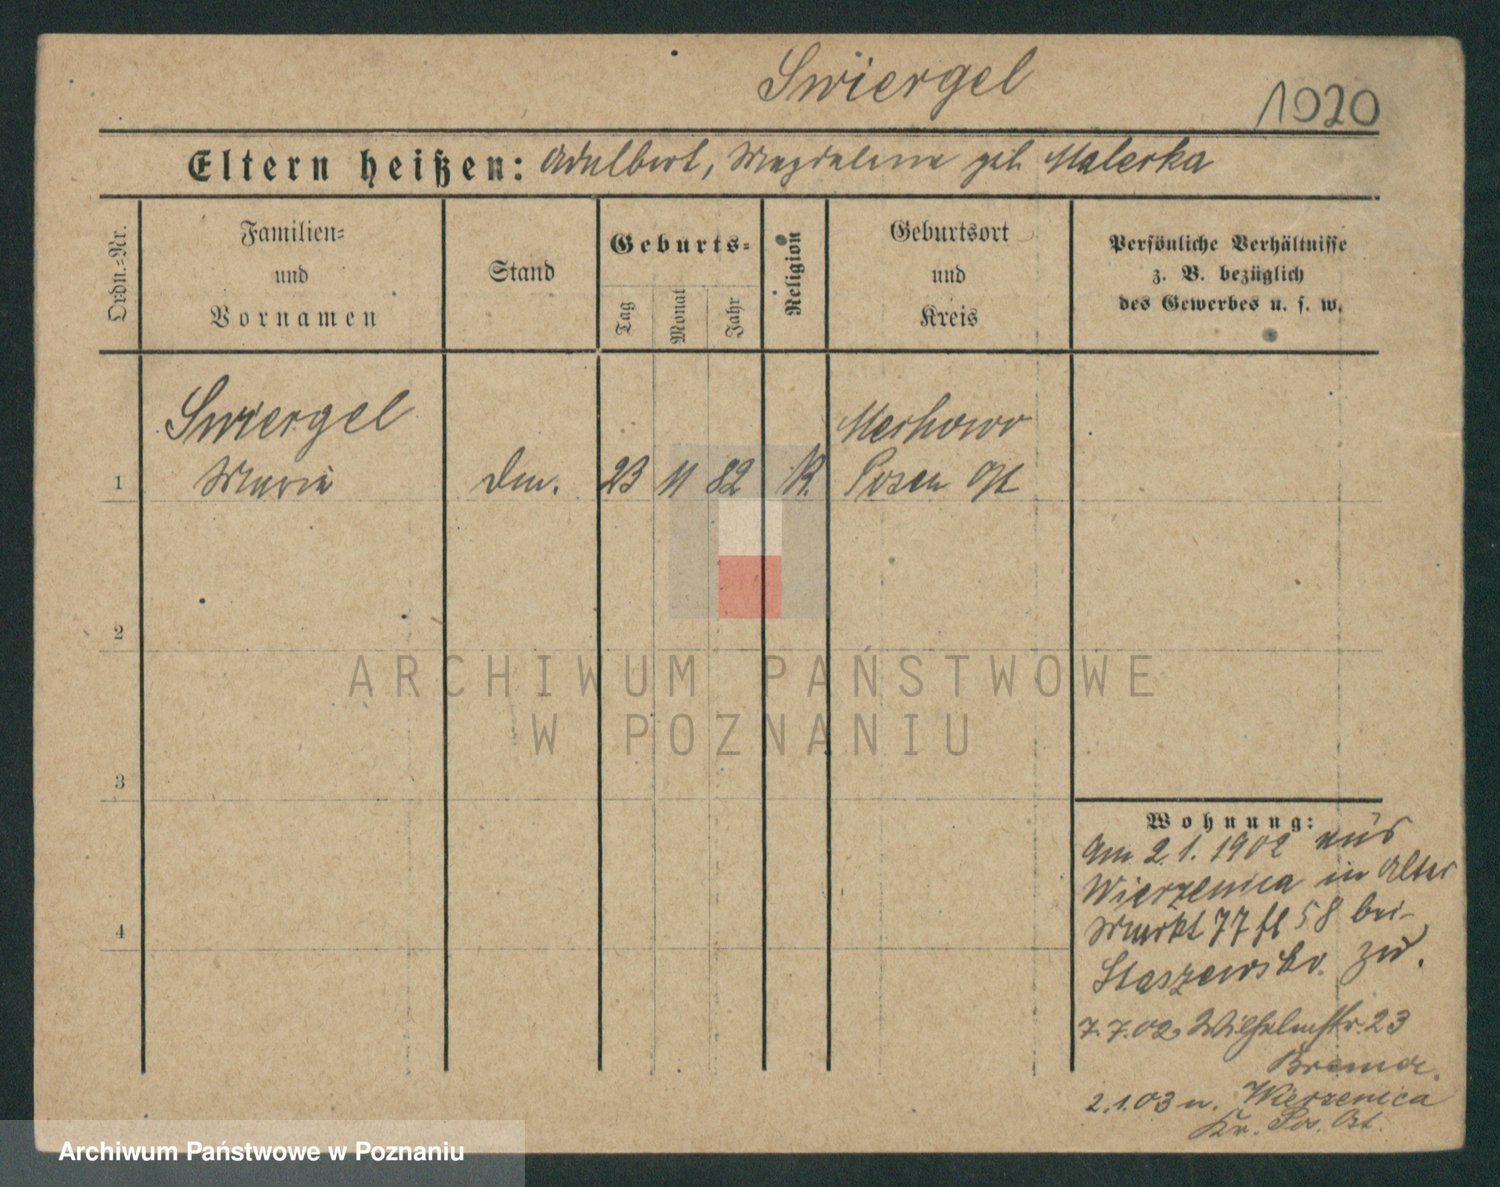 Swiergel
1920
Eltern heißen: Adalbert, Magdalena geb. Malerka
Ordn.-Nr.
Familien-
und
Vornamen
Stand
Geburts-
Tag
Monat
Jahr
Religion
Geburtsort
und
Kreis
Persönliche Verhältnisse
z. B. bezüglich
des Gewerbes u. s. w.
Swiergel
Merkowo
1
Maria
23
11
82
K.
Posen Ost
2
ARCHIWUM PAŃSTWOWE
W POZNANIU
3
Wohnung:
Am 2.1.1902 aus
Wierzenica in Alter
4
Markt 77 58 bei
Staszewski zu.
7.7.02 Wilhelmstr. 23
2.1.03 n. Wierzenica
Kr. Pos. Ost.
Archiwum Państwowe w Poznaniu